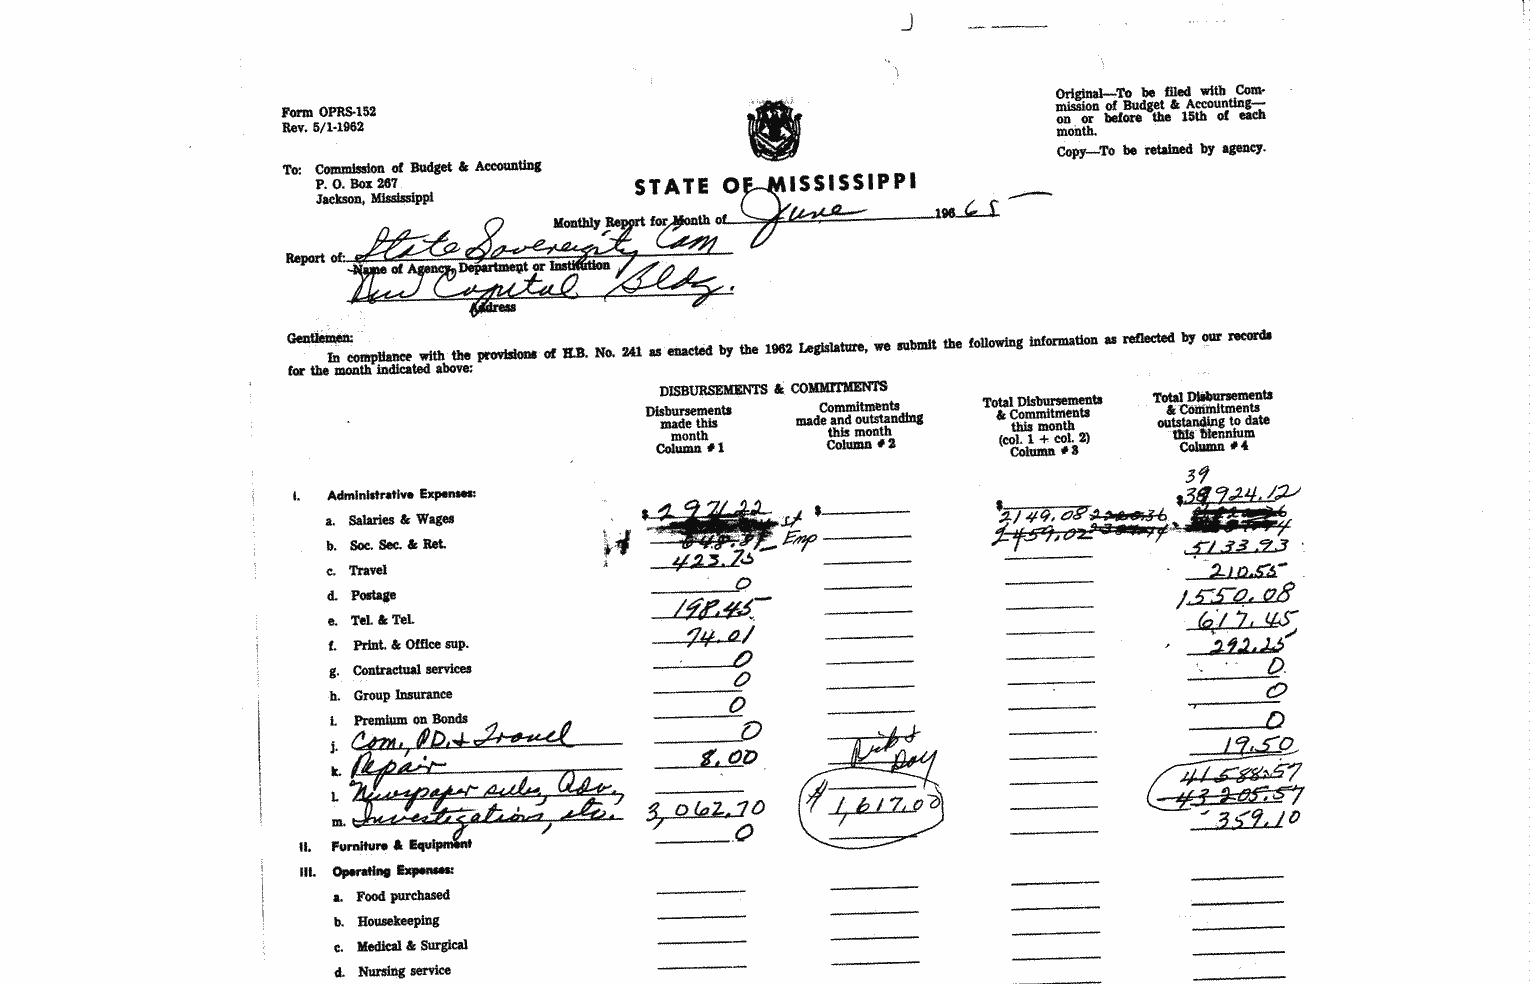 Form OPRS-152
Rev. 5/1-1962
Original—To be filed with Com-
mission of Budget & Accounting—
on or before the 15th of each
month.
Copy—To be retained by agency.
To: Commission of Budget & Accounting
P. O. Box 267
Jackson, Mississippi
STATE OF MISSISSIPPI
Monthly Report for Month of June 196 65
Report of: State Sovereignty Com
Name of Agency, Department or Institution
New Capitol Bldg.
Address
Gentlemen:
In compliance with the provisions of H.B. No. 241 as enacted by the 1962 Legislature, we submit the following information as reflected by our records
for the month indicated above:
DISBURSEMENTS & COMMITMENTS
Disbursements
made this
month
Column #1
Commitments
made and outstanding
this month
Column #2
Total Disbursements
& Commitments
this month
(col. 1 + col. 2)
Column #3
Total Disbursements
& Commitments
outstanding to date
this biennium
Column #4
I. Administrative Expenses:
39
a. Salaries & Wages $2971.22 $ $ $38924.12
st 2149.08
b. Soc. Sec. & Ret. 648.81 Emp 2459.02 5133.93
c. Travel 423.75 210.55
d. Postage 0 1550.08
e. Tel. & Tel. 198.45 617.45
f. Print. & Office sup. 74.01 292.25
g. Contractual services 0 0
h. Group Insurance 0 0
i. Premium on Bonds 0 0
j. Com., PD. & Travel 0 19.50
k. Repair 8.00 41588.57
l. Newspaper subs, Adv., 43205.57
m. Investigations, etc. 3,062.70 $1,617.00 359.10
II. Furniture & Equipment 0
III. Operating Expenses:
a. Food purchased
b. Housekeeping
c. Medical & Surgical
d. Nursing service